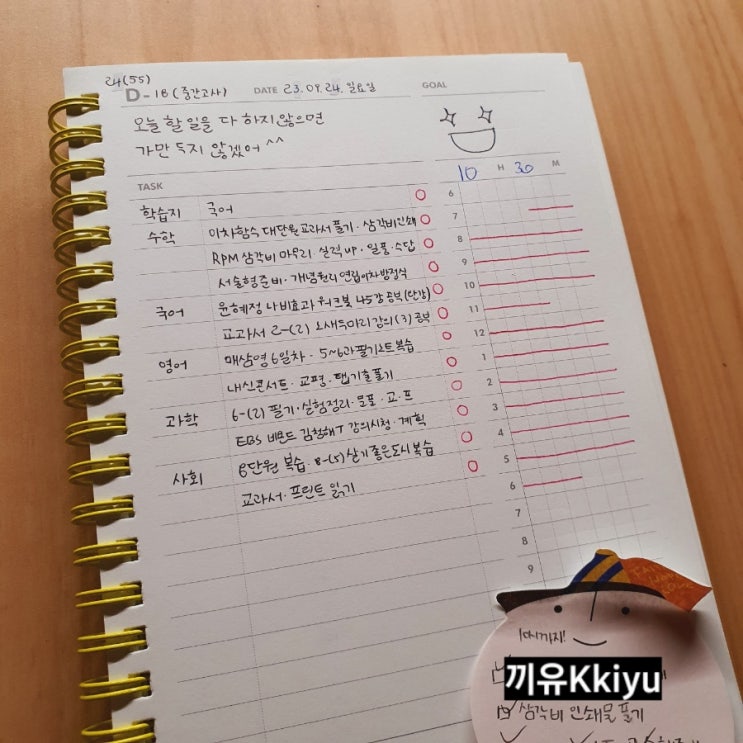 24(55)
D-18(중간고사) DATE 23.09.24.일요일 GOAL
오늘 할 일을 다 하지 않으면
가만 두지 않겠어^^
10 H 30 M
TASK
학습지 국어
수학 이차함수 대단원 교과서 풀기·삼각비 인쇄
RPM 삼각비 마무리·실력up·일품·수답
서술형 준비·개념원리 연립이차방정식
국어 윤혜정 나비효과 워크북 45강 공부(단강)
교과서 2-(2) 강의(3) 공부
영어 매삼영 6일차·5~6과 필기노트 복습
내신콘서트·교평·탭 기출 풀기
과학 6-(2) 필기·실험정리·오포·교·프
EBS 비욘드 김청해T 강의시청·계획
사회 8단원 복습·8-(5) 살기 좋은 도시 복습
교과서·프린트 읽기
6
7
8
9
10
11
12
1
2
3
4
5
6
7
8
9
끼유Kkiyu
삼각비 인쇄물 풀기